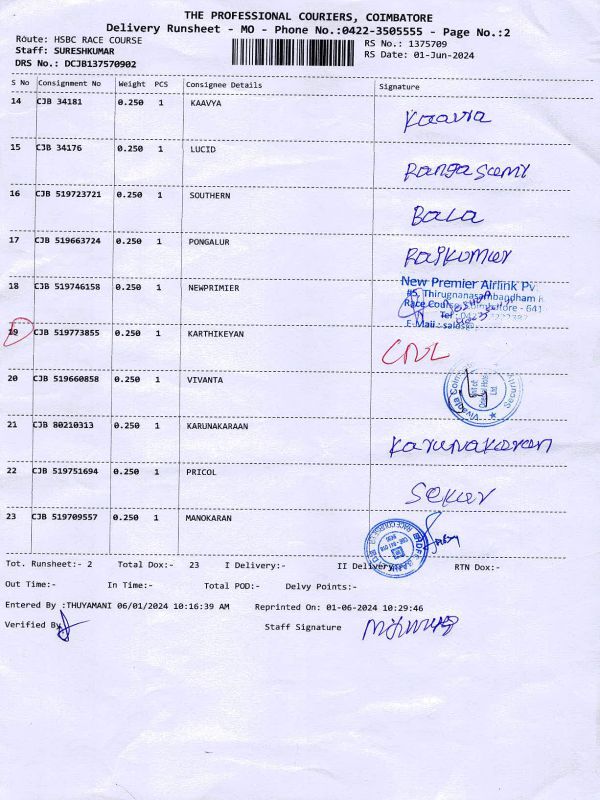 THE PROFESSIONAL COURIERS, COIMBATORE
Delivery Runsheet - MO - Phone No.:0422-3505555 - Page No.:2
Route: HSBC RACE COURSE
RS No.: 1375709
Staff: SURESHKUMAR
RS Date: 01-Jun-2024
DRS No.: DCJB137570902
S No Consignment No Weight PCS Consignee Details Signature
14 CJB 34181 0.250 1 KAAVYA Kaavya
15 CJB 34176 0.250 1 LUCID Rangasamy
16 CJB 519723721 0.250 1 SOUTHERN Bala
17 CJB 519663724 0.250 1 PONGALUR Rajkumar
18 CJB 519746158 0.250 1 NEWPRIMIER
New Premier Airlink Pv
#5, Thirugnanasambandham R
Race Course, Coimbatore - 641
19 CJB 519773855 0.250 1 KARTHIKEYAN CNL
20 CJB 519660858 0.250 1 VIVANTA
21 CJB 80210313 0.250 1 KARUNAKARAAN Karunakaran
22 CJB 519751694 0.250 1 PRICOL Sekar
23 CJB 519709557 0.250 1 MANOKARAN
Tot. Runsheet:- 2 Total Dox:- 23 I Delivery:- II Delivery:- RTN Dox:-
Out Time:- In Time:- Total POD:- Delvy Points:-
Entered By :THUYAMANI 06/01/2024 10:16:39 AM Reprinted On: 01-06-2024 10:29:46
Verified By Staff Signature